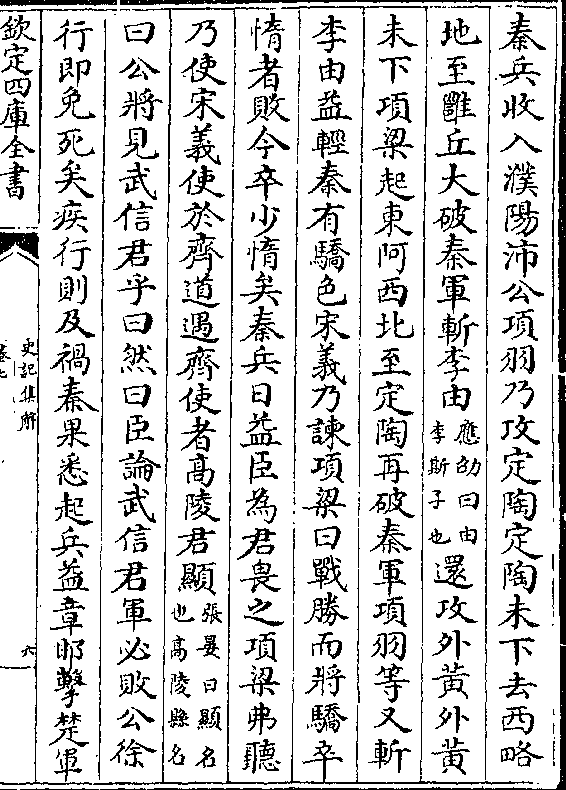 秦兵收入濮陽沛公項羽乃攻定陶定陶未下去西略
地至雝丘大破秦軍斬李由應劭曰由李斯子也還攻外黄外黄
未下項梁起東阿西北至定陶再破秦軍項羽等又斬
李由益輕秦有驕色宋義乃諫項梁曰戰勝而將驕卒
惰者敗今卒少惰矣秦兵日益臣為君畏之項梁弗聽
乃使宋義使於齊道遇齊使者髙陵君顯張晏曰顯名也髙陵縣名
曰公將見武信君乎曰然曰臣論武信君軍必敗公徐
行即免死矣疾行則及禍秦果悉起兵益章邯擊楚軍
欽定四庫全書
史記集解
卷七
六